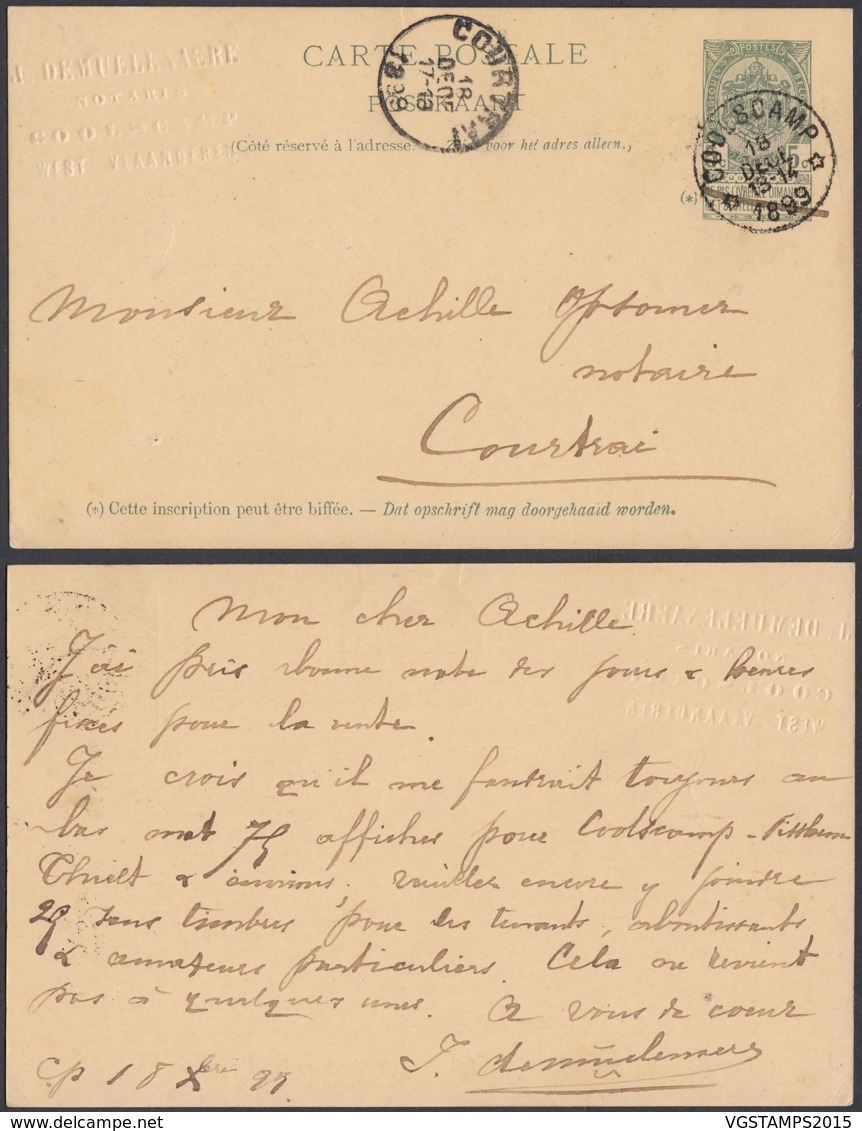 J. DEMUELENAERE
NOTARIS
COOLSCAMP
WEST VLAANDEREN
CARTE POSTALE
POSTKAART
(Côté réservé à l'adresse. voor het adres alleen.)
COURTRAI
18
DECE
17-18
1899
POSTES
5
COOLSCAMP
18
DECE
13-14
1899
(*)
Monsieur Achille Opsomer
notaire
Courtrai
(*) Cette inscription peut être biffée. — Dat opschrift mag doorgehaald worden.
Mon cher Achille
J. DEMUELENAERE
NOTARIS
J'ai pris bonne note des jours & heures
WEST VLAANDEREN
fixés pour la vente.
Je crois qu'il me faudrait toujours au
bas mot 75 affiches pour Coolscamp - Pitthem
Thielt & environs. Veuillez encore y joindre
25 sans timbres pour les tenants, aboutissants
& amateurs particuliers. Cela ne revient
pas à quelques unes. A vous de coeur
Cp 18 Xbre 99 J. demuelenaere
VGSTAMPS2015